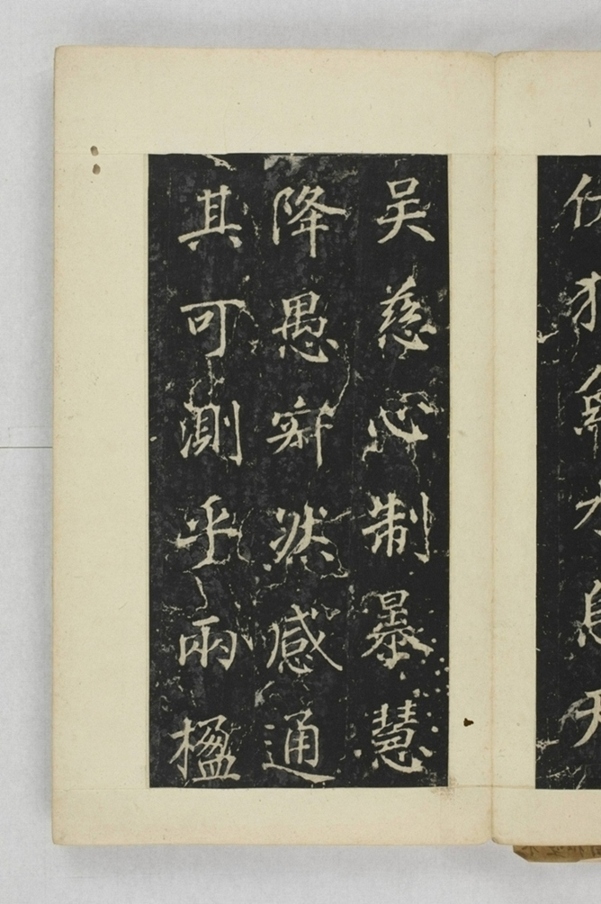 吴慈心制暴慧
降愚寂然感通
其可測乎兩楹